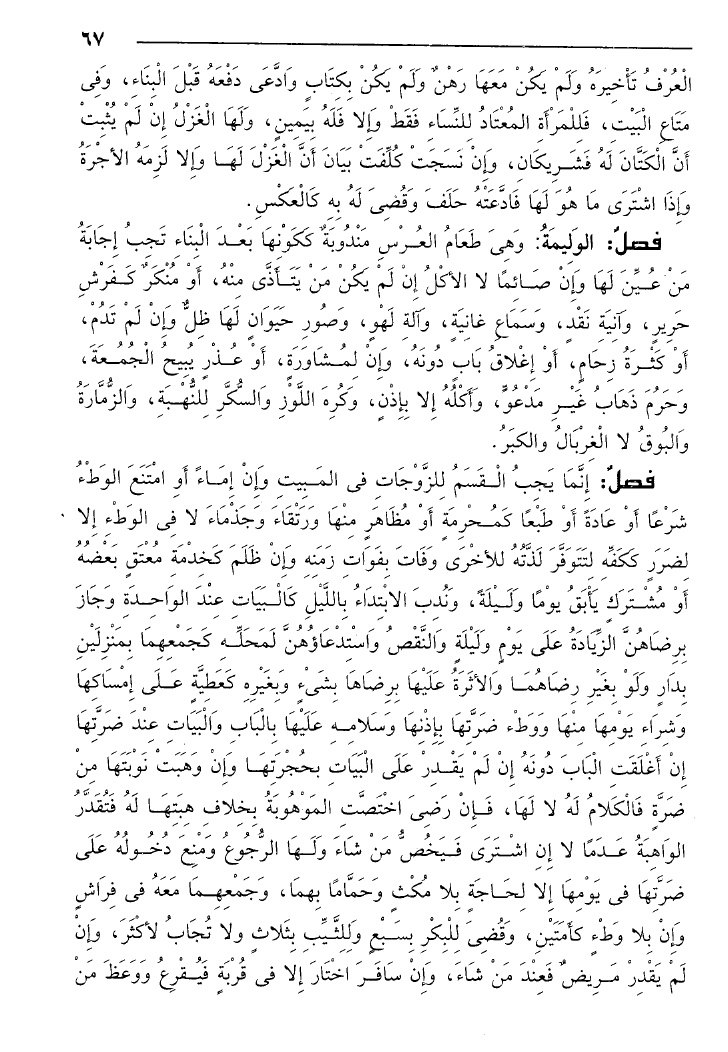 ٦٧
الْعُرْفُ تَأْخِيرَهُ وَلَمْ يَكُنْ مَعَهَا رَهْنٌ وَلَمْ يَكُنْ بِكِتَابٍ وَادَّعَى دَفْعَهُ قَبْلَ الْبِنَاءِ، وَفِى
مَتَاعِ الْبَيْتِ، فَلِلْمَرْأَةِ الْمُعْتَادُ لِلنِّسَاءِ فَقَطْ وَإِلا فَلَهُ بِيَمِينٍ، وَلَهَا الْغَزْلُ إِنْ لَمْ يُثْبِتْ
أَنَّ الْكَتَّانَ لَهُ فَشَرِيكَانِ، وَإِنْ نَسَجَتْ كُلِّفَتْ بَيَانَ أَنَّ الْغَزْلَ لَهَا وَإِلا لَزِمَهُ الأجْرَةُ
وَإِذَا اشْتَرَى مَا هُوَ لَهَا فَادَّعَتْهُ حَلَفَ وَقُضِىَ لَهُ بِهِ كَالْعَكْسِ.
فصلٌ: الوَلِيمَةُ: وَهِىَ طَعَامُ العُرْسِ مَنْدُوبَةٌ كَكَوْنِهَا بَعْدَ الْبِنَاءِ تَجِبُ إِجَابَةُ
مَنْ عُيِّنَ لَهَا وَإِنْ صَائِمًا لا الأكْلُ إِنْ لَمْ يَكُنْ مَنْ يَتَأَذَّى مِنْهُ، أَوْ مُنْكَرٌ كَفَرْشِ
حَرِيرٍ، وَآنِيَةِ نَقْدٍ، وَسَمَاعِ غَانِيَةٍ، وَآلَةِ لَهْوٍ، وَصُورِ حَيَوَانٍ لَهَا ظِلٌّ وَإِنْ لَمْ تَدُمْ،
أَوْ كَثْرَةُ زِحَامٍ، أَوْ إِغْلاقُ بَابٍ دُونَهُ، وَإِنْ لِمُشَاوَرَةٍ، أَوْ عُذْرٌ يُبِيحُ الْجُمُعَةَ،
وَحَرُمَ ذَهَابُ غَيْرِ مَدْعُوٍّ، وَأَكْلُهُ إِلا بِإِذْنٍ، وَكُرِهَ اللَّوْزِ وَالسُّكَّرِ لِلنُّهْبَةِ، وَالزُّمَّارَةُ
وَالْبُوقُ لا الْغِرْبَالُ والكَبَرُ.
فصلٌ: إِنَّمَا يَجِبُ الْقَسَمُ لِلزَّوْجَاتِ فِى الْمَبِيتِ وَإِنْ إِمَاءً أَوِ امْتَنَعَ الْوَطْءُ
شَرْعًا أَوْ عَادَةً أَوْ طَبْعًا كَمُحْرِمَةٍ أَوْ مُظَاهَرٍ مِنْهَا وَرَتْقَاءَ وَجَذْمَاءَ لا فِى الْوَطْءِ إِلا
لِضَرَرٍ كَكَفِّهِ لِتَتَوَفَّرَ لَذَّتُهُ لِلأخْرَى وَفَاتَ بِفَوَاتِ زَمَنِهِ وَإِنْ ظَلَمَ كَخِدْمَةِ مُعْتَقٍ بَعْضُهُ
أَوْ مُشْتَرَكٍ يَأْبَقُ يَوْمًا وَلَيْلَةً، وَنُدِبَ الابْتِدَاءُ بِاللَّيْلِ كَالْبَيَاتِ عِنْدَ الوَاحِدَةِ وَجَازَ
بِرِضَاهُنَّ الزِّيَادَةُ عَلَى يَوْمٍ وَلَيْلَةٍ وَالنَّقْصُ وَاسْتِدْعَاؤُهُنَّ لِمَحَلِّهِ كَجَمْعِهِمَا بِمَنْزِلَيْنِ
بِدَارٍ وَلَوْ بِغَيْرِ رِضَاهُمَا وَالأثَرَةُ عَلَيْهَا بِرِضَاهَا بِشَىْءٍ وَبِغَيْرِهِ كَعَطِيَّةٍ عَلَى إِمْسَاكِهَا
وَشِرَاءِ يَوْمِهَا مِنْهَا وَوَطْءِ ضَرَّتِهَا بِإِذْنِهَا وَسَلامِهِ عَلَيْهَا بِالْبَابِ وَالْبَيَاتِ عِنْدَ ضَرَّتِهَا
إِنْ أَغْلَقَتِ الْبَابَ دُونَهُ إِنْ لَمْ يَقْدِرْ عَلَى الْبَيَاتِ بِحُجْرَتِهَا وَإِنْ وَهَبَتْ نَوْبَتَهَا مِنْ
ضَرَّةٍ فَالْكَلامُ لَهُ لا لَهَا، فَإِنْ رَضِىَ اخْتَصَّتِ الْمَوْهُوبَةُ بِخِلافِ هِبَتِهَا لَهُ فَتُقَدَّرُ
الوَاهِبَةُ عَدَمًا لا إِنِ اشْتَرَى فَيَخُصُّ مَنْ شَاءَ وَلَهَا الرُّجُوعُ وَمُنِعَ دُخُولُهُ عَلَى
ضَرَّتِهَا فِى يَوْمِهَا إِلا لِحَاجَةٍ بِلا مُكْثٍ وَحَمَّامًا بِهِمَا، وَجَمْعِهِمَا مَعَهُ فِى فِرَاشٍ
وَإِنْ بِلا وَطْءٍ كَأَمَتَيْنِ، وَقُضِىَ لِلْبِكْرِ بِسَبْعٍ وَلِلثَّيِّبِ بِثَلاثٍ وَلا تُجَابُ لأكْثَرَ، وَإِنْ
لَمْ يَقْدِرْ مَرِيضٌ فَعِنْدَ مَنْ شَاءَ، وَإِنْ سَافَرَ اخْتَارَ إِلا فِى قُرْبَةٍ فَيُقْرِعُ وَوَعَظَ مَنْ